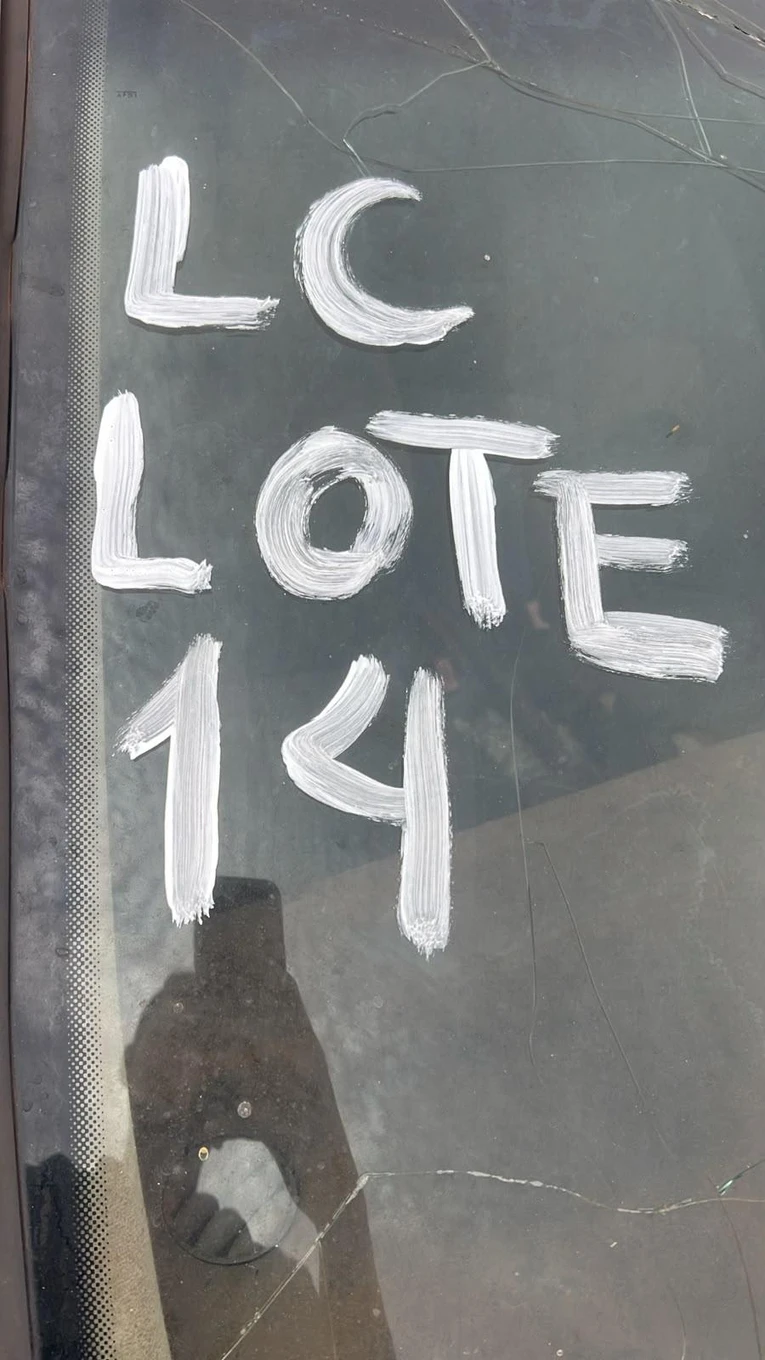 LC
LOTE
14